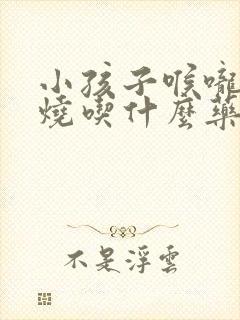 小孩子喉嚨
燒喫什麼藥
不是浮雲